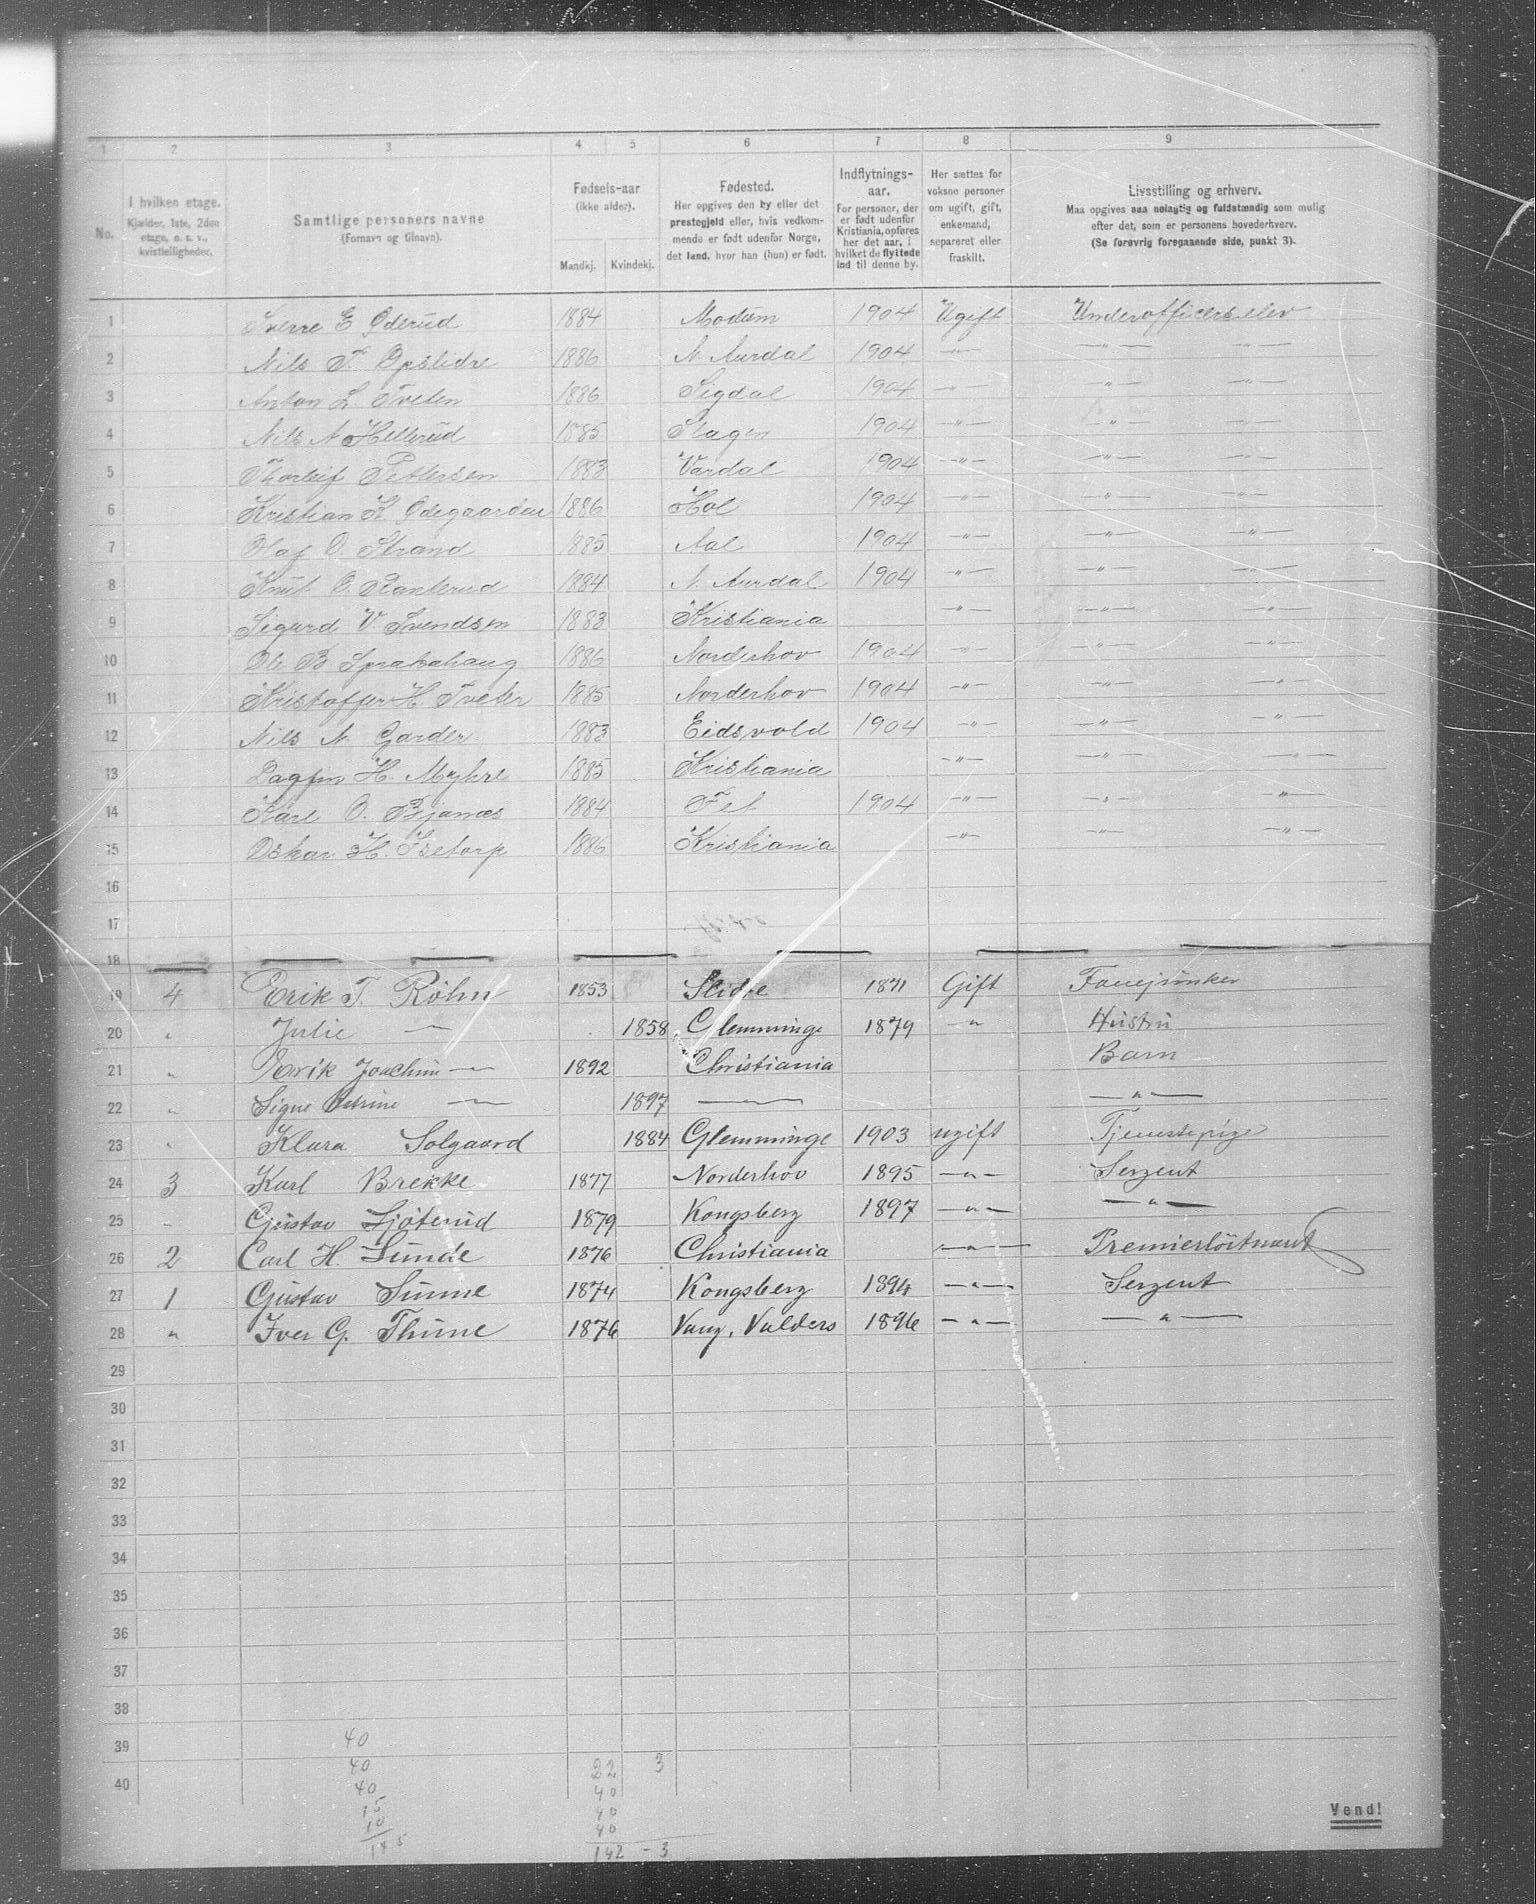 1 2 3 4 5 6 7 8 9
No.
I hvilken etage.
Kjælder, 1ste, 2den
etage, o. s. v.,
kvistleiligheder.
Samtlige personers navne
(Fornavn og tilnavn).
Fødsels-aar
(ikke alder).
Mandkj. Kvindekj.
Fødested.
Her opgives den by eller det
prestegjeld eller, hvis vedkom-
mende er født udenfor Norge,
det land, hvor han (hun) er født.
Indflytnings-
aar.
For personer, der
er født udenfor
Kristiania, opføres
her det aar, i
hvilket de flyttede
ind til denne by.
Her sættes for
voksne personer
om ugift, gift,
enkemand,
separeret eller
fraskilt.
Livsstilling og erhverv.
Maa opgives saa nøiagtig og fuldstændig som mulig
efter det, som er personens hovederhverv.
(Se forøvrig foregaaende side, punkt 3).
1 Sverre E Øderud 1884 Modum 1904 Ugift Underofficerselev
2 Nils T. Opslidre 1886 N. Aurdal 1904 —„— —„— —„—
3 Anton L. Tveten 1886 Sigdal 1904 —„— —„— —„—
4 Nils N Hellerud 1885 Slagen 1904 —„— —„— —„—
5 Thorleif Pettersen 1883 Vardal 1904 —„— —„— —„—
6 Kristian K Ødegaarden 1886 Hol 1904 —„— —„— —„—
7 Olaf O. Strand 1885 Aal 1904 —„— —„— —„—
8 Knut O. Ranterud 1884 N. Aurdal 1904 —„— —„— —„—
9 Sigurd V. Svendsen 1883 Kristiania —„— —„— —„—
10 Ole B Sprakahaug 1886 Norderhov 1904 —„— —„— —„—
11 Kristoffer H. Tveter 1885 Norderhov 1904 —„— —„— —„—
12 Nils N. Garder 1883 Eidsvold 1904 —„— —„— —„—
13 Dagfin H. Myhre 1885 Kristiania —„— —„— —„—
14 Karl O. Bjanæs 1884 Fet 1904 —„— —„— —„—
15 Oskar H. Isetorp 1886 Kristiania —„— —„— —„—
16
17
18
19 4 Erik T. Röhn 1853 Slidre 1871 Gift Fanejunker
20 „ Julie —„— 1858 Glemminge 1879 —„— Hustru
21 „ Erik Joachim —„— 1892 Christiania Barn
22 „ Signe Petrine —„— 1897 —„— —„—
23 „ Klara Solgaard 1884 Glemminge 1903 ugift Tjenestepige
24 3 Karl Brekke 1877 Norderhov 1895 —„— Sergent
25 „ Gustav Sjöterud 1879 Kongsberg 1897 —„— —„—
26 2 Carl H. Sunde 1876 Christiania —„— Premierlöitnant
27 1 Gustav Sunne 1874 Kongsberg 1894 —„— Sergent
28 „ Iver G. Thune 1876 Vang, Valders 1896 —„— —„—
29
30
31
32
33
34
35
36
37
38
39 40
40 40 22 3
40 40
15 40
10 40
145 142 - 3
Vend!